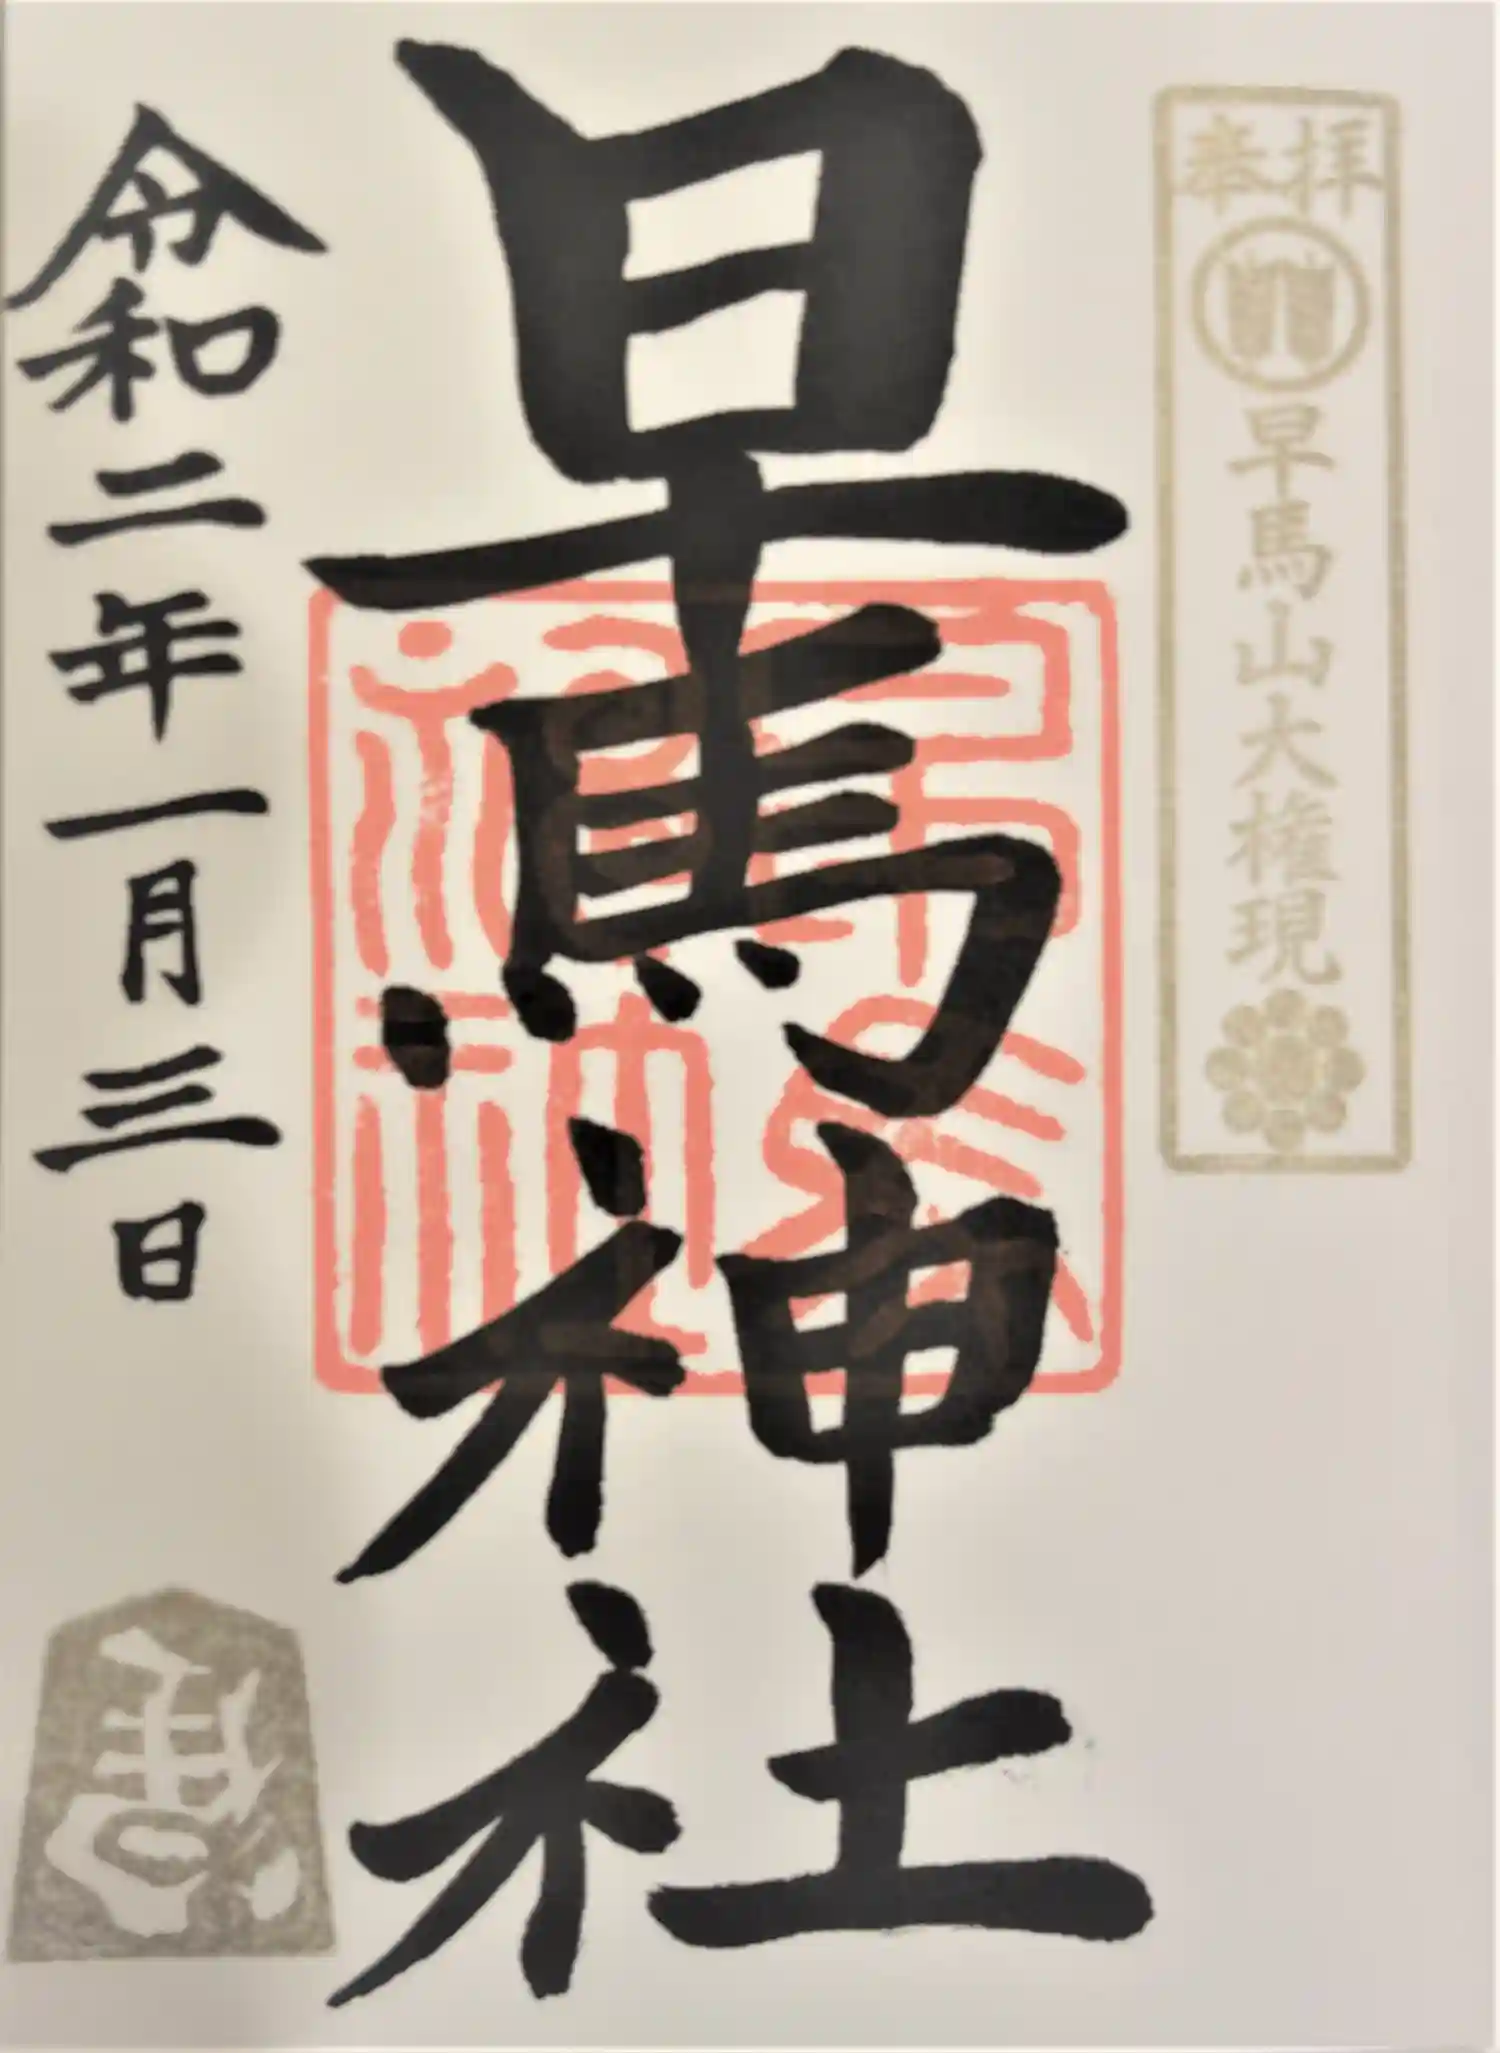 奉拝
早馬山大権現
早馬神社
早馬神社
令和二年一月三日